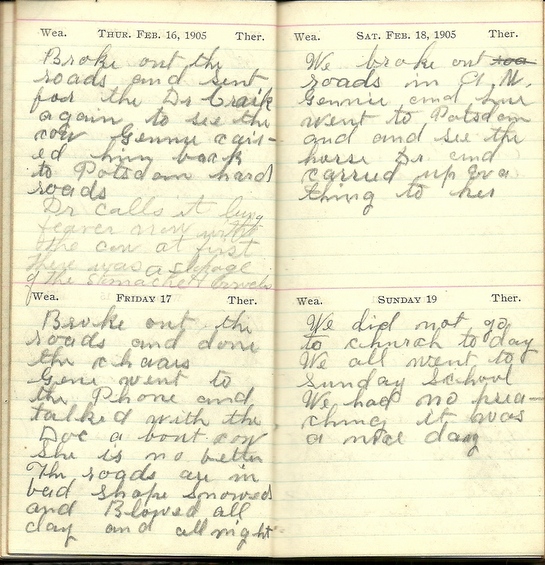 Wea. THUR. FEB. 16, 1905 Ther.
Broke out the
roads and sent
for the Dr Craik
again to see the
cow Gennie cairi-
ed him back
to Potsdam hard
roads
Dr calls it lung
feaver now with
the cow at first
there was a
of the stomach & bowels
Wea. FRIDAY 17 Ther.
Broke out the
roads and done
the choars
Gene went to
the Phone and
talked with the
Doc a bout cow
She is no better
The roads are in
bad shape snowed
and Blowed all
day and all night
Wea. SAT. FEB. 18, 1905 Ther.
We broke out roa
roads in A N.
Gennie and
went to Potsdam
and and see the
horse Dr and
carried up Eva
thing to her
Wea. SUNDAY 19 Ther.
We did not go
to church to day
We all went to
Sunday School
We had no prea-
ching it was
a nice day